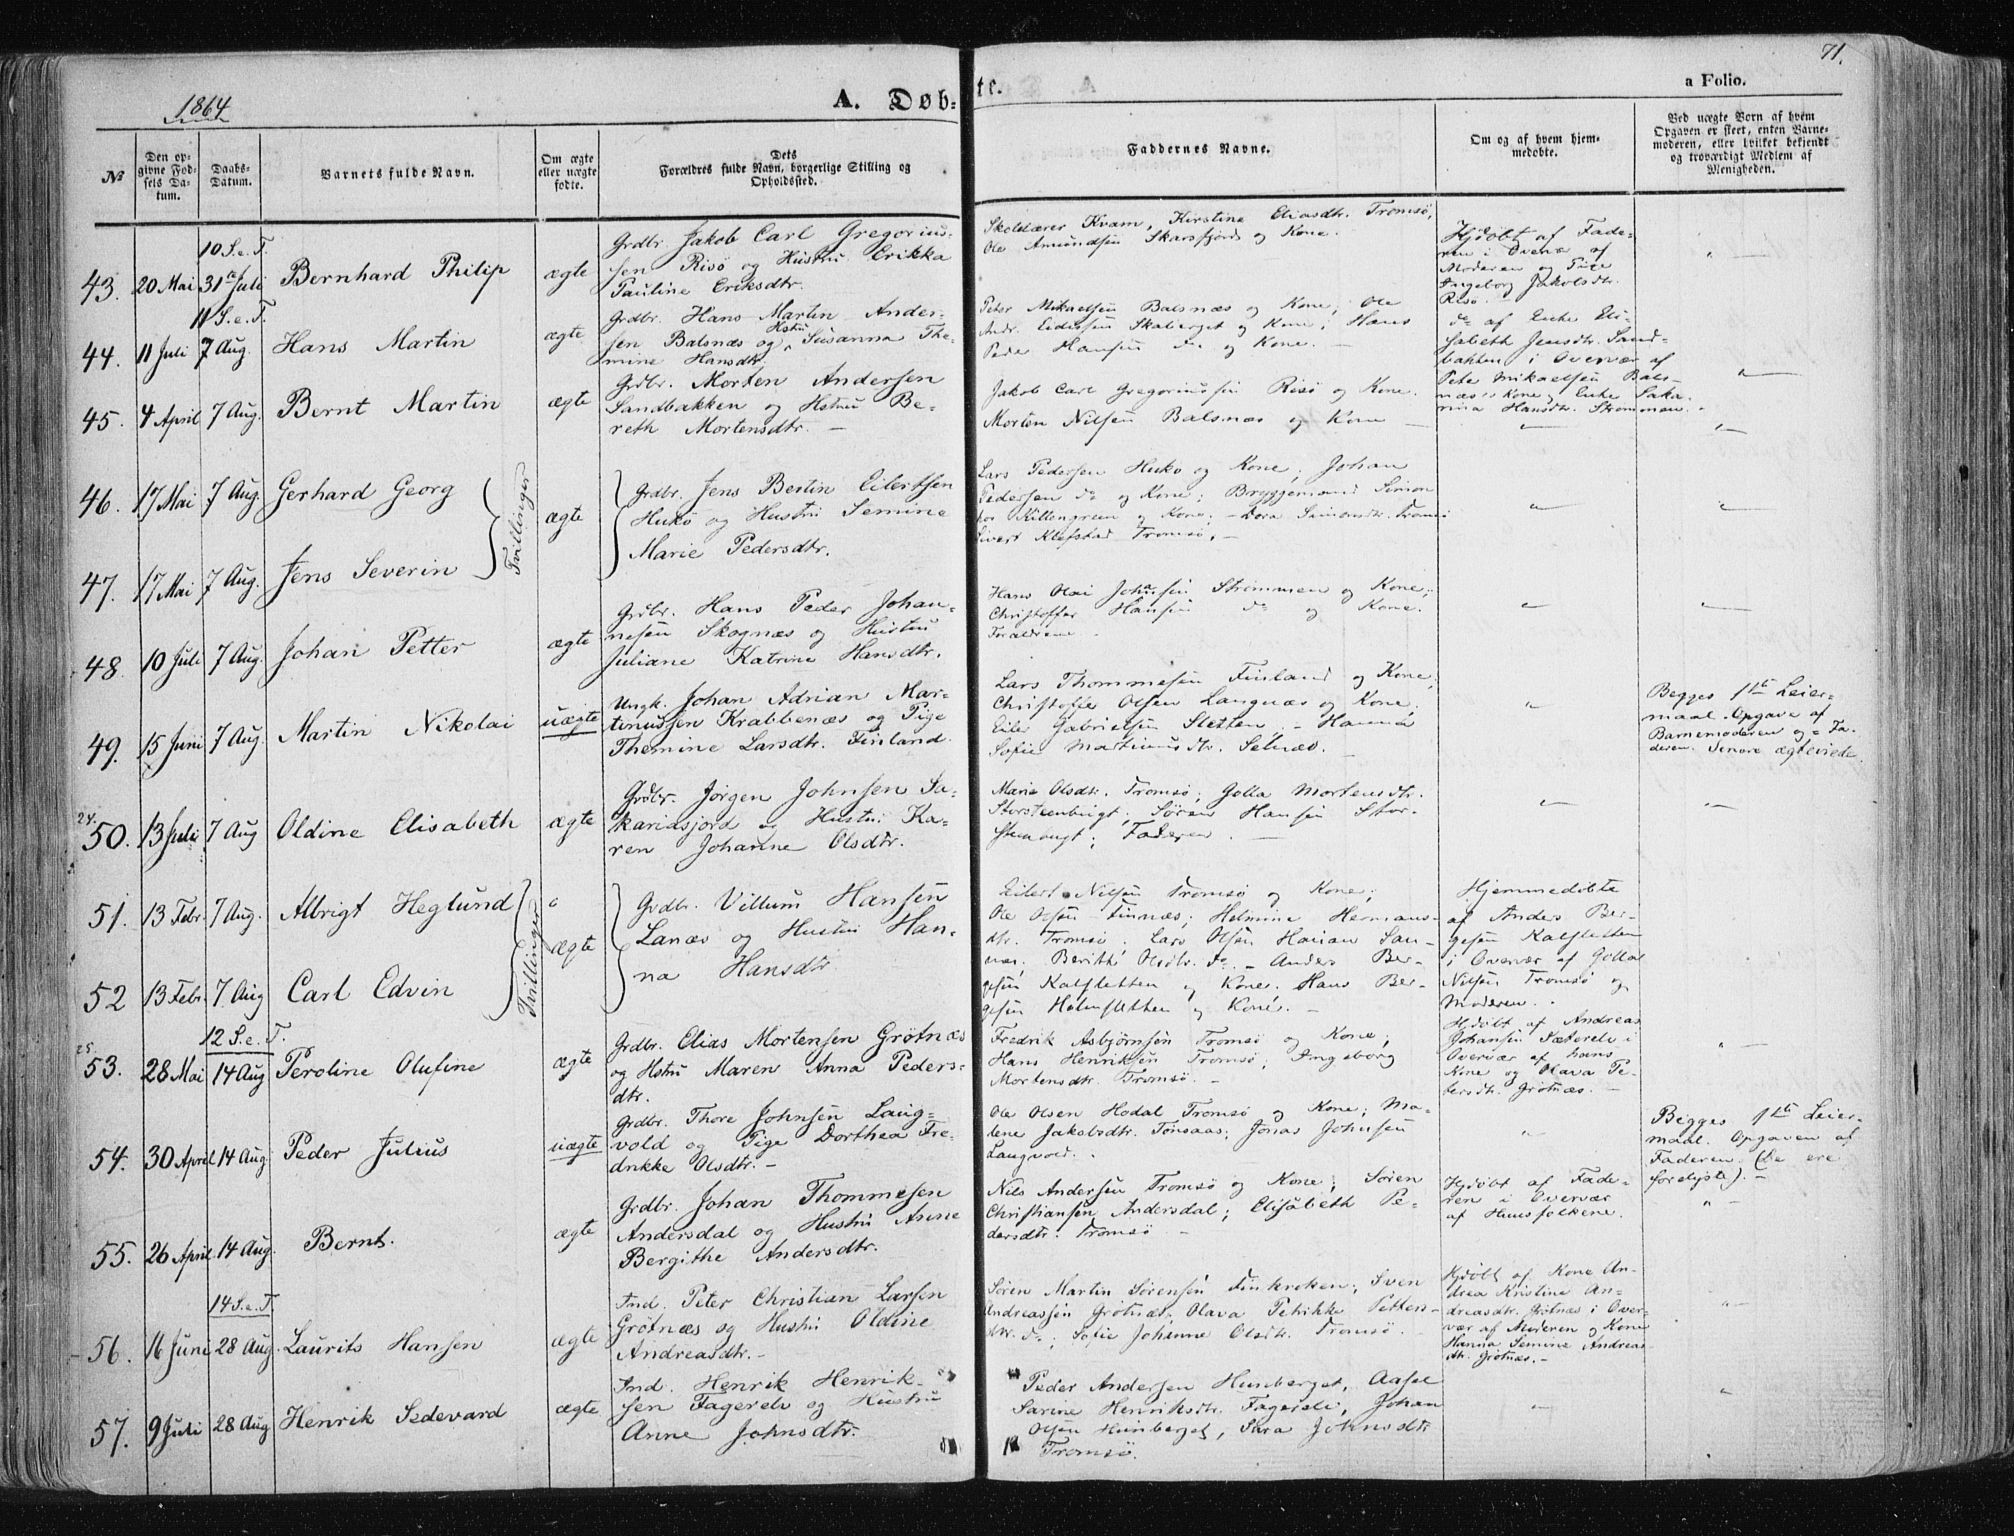 71.
1864
A. Døb-
te.
a Folio.
No
Den op-
givne Fød-
sels Da-
tum.
Daabs-
Datum.
Barnets fulde Navn.
Om ægte
eller uægte
fødte.
Dets
Forældres fulde Navn, borgerlige Stilling og
Opholdssted.
Faddernes Navne.
Om og af hvem hjem-
medøbte.
Ved uægte Børn af hvem
Opgaven er skeet, enten Barne-
moderen, eller hvilket bekjendt
og troværdigt Medlem af
Menigheden.
10 S. e. T.
43. 20 Mai 31 Juli Bernhard Philip ægte
Grdbr. Jakob Carl Gregorius-
sen Risø og Hustru Erikka
Pauline Eriksdtr.
Skolelærer Kvam, Kirstine Eliasdtr. Tromsø,
Ole Amundsen Skarsfjord og Kone.
Hjdøbt af Fade-
ren i Overvær af
Moderen og Pige
Ingeborg Jakobsdtr.
Risø.
11 S. e. T.
44. 11 Juli 7 Aug. Hans Martin ægte
Grdbr. Hans Martin Ander-
sen Balsnæs og Hstru Susanna The-
mine Hansdtr.
Peter Mikaelsen Balsnæs og Kone; Ole
Andr. Eidersen Skaberget og Kone; Hans
Peder Hansen do og Kone.
do af Enke Eli-
sabeth Jensdtr. Sand-
bakken i Overvær af
Pete Mikaelsen Bals-
næs's Kone og Enke Saka-
rina Hansdtr. Strømmen.
45. 4 April 7 Aug. Bernt Martin ægte
Grdbr. Morten Andersen
Sandbakken og Hstru Be-
reth Mortensdtr.
Jakob Carl Gregoriussen Risø og Kone.
Morten Nilsen Balsnæs og Kone
46. 17 Mai 7 Aug. Gerhard Georg
Tvillinger
ægte
Grdbr. Jens Bertin Eilertsen
Hukø og Hustru Semine
Marie Pedersdtr.
Lars Pedersen Hukø og Kone; Johan
Pedersen do og Kone; Bryggemand Simon
hos Killengreen og Kone; Dora Simonsdtr. Tromsø
Sivert Klefstad Tromsø.
47. 17 Mai 7 Aug. Jens Severin
48. 10 Juli 7 Aug. Johan Petter ægte
Grdbr. Hans Peder Johan-
nesen Skognæs og Hustru
Juliane Katrine Hansdtr.
Hans Olai Johnsen Strømmen og Kone;
Christoffer Hansen do og Kone.
Forældrene
49. 15 Juni 7 Aug. Martin Nikolai uægte
Ungk. Johan Adrian Mar-
tinussen Krabbenæs og Pige
Themine Larsdtr. Finland.
Lars Thommesen Finland og Kone;
Christoffer Olsen Langnæs og Kone.
Eiler Gabrielsen Sletten - Hanna
Sofie Martinusdtr. Selnæs.
Begges 1ste Leier-
maal. Opgave af
Barnemoderen og Fa-
deren. Senere ægteviede.
24.
50. 13 Juli 7 Aug Oldine Elisabeth ægte
Grdbr. Jørgen Johnsen Sa-
kariasjord og Hustru Ka-
ren Johanne Olsdtr.
Marie Olsdtr. Tromsø; Golla Mortensdtr.
Storsteenbugt; Søren Hansen Stor-
stenbugt; Faderen.
51. 13 Febr. 7 Aug. Albrigt Heglund
Tvillinger
ægte
Grdbr. Villum Hansen
Lanæs og Hustru Han-
na Hansdtr
Eilert Nilsen Tromsø og Kone;
Ole Olsen Finnæs; Helmine Hermans-
dtr. Tromsø. Lars Olsen Hanan San-
næs; Berith Olsdtr. do. - Anders Ber-
gesen Kalfsletten og Kone. Hans Ber-
gesen Holmsletten og Kone.
Hjemmedøbte
af Anders Ber-
gesen Kalfsletten
i Overvær af Golla
Nilsen Tromsø og
Moderen.
52 13 Febr. 7 Aug Carl Edvin
12 S. e. T.
25.
53. 28 Mai 14 Aug Peroline Olufine ægte
Grdbr. Elias Mortensen Grøtnæs
og Hstru Maren Anna Peders-
dtr.
Fredrik Asbjørnsen Tromsø og Kone;
Hans Henriksen Tromsø; Ingeborg
Mortensdtr. Tromsø.
Hjdøbt af Andreas
Johansen Sæterelv i
Overvær af hans
Kone og Olava Pe-
dersdtr. Grøtnæs.
54. 30 April 14 Aug. Peder Julius uægte
Grdbr. Thore Johnsen Laug-
vold og Pige Dorthea Fre-
drikke Olsdtr.
Ole Olsen Hodal Tromsø og Kone; Ma-
lene Jakobsdtr. Tønsaas; Jonas Johnsen
Laugvold.
Begges 1ste Leier-
maal. Opgaven af
Faderen. (De ere
forelyste).
55. 26 April 14 Aug. Bernt. ægte
Grdbr. Johan Thommesen
Andersdal og Hustru Anne
Bergithe Andersdtr.
Nils Andersen Tromsø og Kone; Søren
Christiansen Andersdal; Elisabeth Pe-
dersdtr. Tromsø
Hjdøbt af Fade-
ren i Overvær
af Huusfolkene.
14 S. e. T.
56. 16 Juni 28 Aug. Laurits Hansen ægte
Ind. Peter Christian Larsen
Grøtnæs og Hustru Oldine
Andreasdtr.
Søren Martin Sørensen Finkroken; Sven
Andreassen Grøtnæs; Olava Petrikke Petters-
dtr. do; Sofie Johanne Olsdtr. Tromsø.
Hjdøbt af Kone An-
drea Kristine An-
dreasdtr. Grøtnæs i Over-
vær af Moderen og Kone
Hanna Semine Andreas-
dtr. Grøtnæs.
57. 9 Juli 28 Aug Henrik Sedevard ægte
Ind. Henrik Henrik-
sen Fagerelv og Hustru
Anne Johnsdtr.
Peder Andersen Hunberget, Aasel
Sarine Henriksdtr. Fagerelv, Johan
Olsen Hunberget, Sara Johnsdtr
Tromsø.